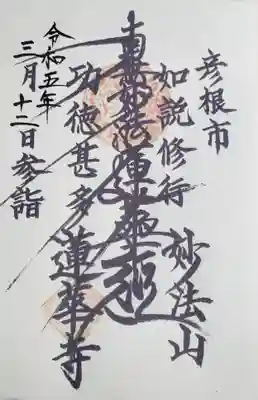 彦根市
妙法山
如説修行
南無妙法蓮華経
功徳甚多
蓮華寺
令和五年
三月十二日参詣